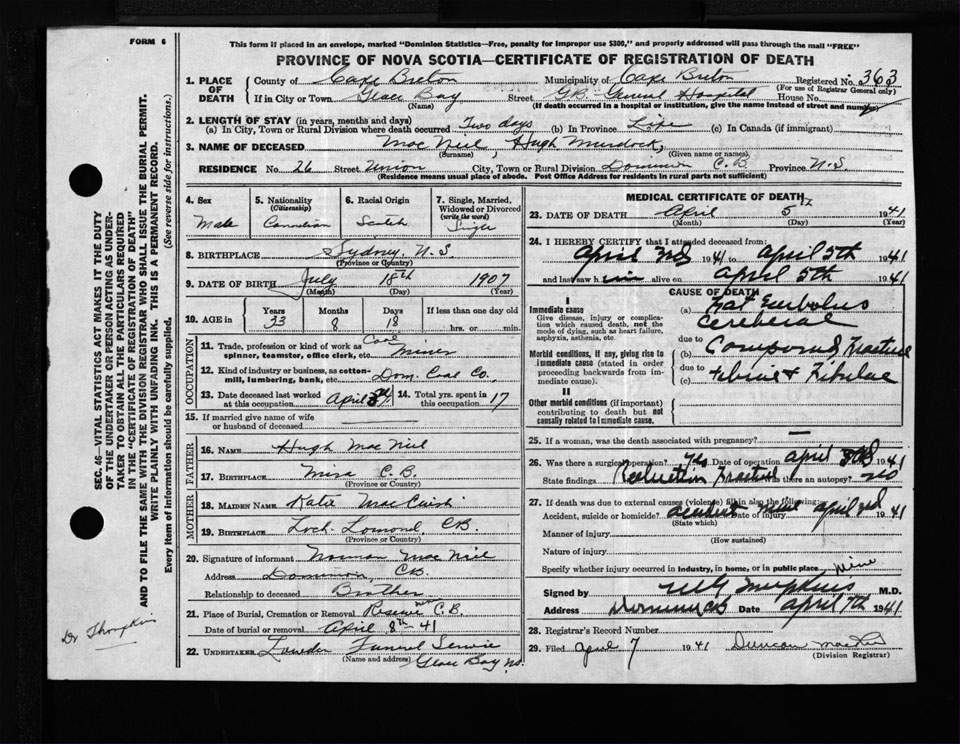 FORM 6
This form if placed in an envelope, marked "Dominion Statistics—Free, penalty for improper use $300," and properly addressed will pass through the mail "FREE"
PROVINCE OF NOVA SCOTIA—CERTIFICATE OF REGISTRATION OF DEATH
1. PLACE OF DEATH County of Cape Breton Municipality of Cape Breton Registered No. 363
(For use of Registrar General only)
If in City or Town Glace Bay Street G.B. General Hospital House No.
(Name) (If death occurred in a hospital or institution, give name instead of street and number)
2. LENGTH OF STAY (in years, months and days)
(a) In City, Town or Rural Division where death occurred Two days (b) In Province Life (c) In Canada (if immigrant)
3. NAME OF DECEASED Mac Neil, Hugh Murdock,
(Surname) (Given name or names)
RESIDENCE No. 26 Street Union City, Town or Rural Division Dominion C.B. Province N.S
(Residence means usual place of abode. Post Office Address for residents in rural parts not sufficient)
4. Sex Male
5. Nationality (Citizenship) Canadian
6. Racial Origin Scotch
7. Single, Married, Widowed or Divorced (write the word) Single
8. BIRTHPLACE Sydney N.S
(Province or Country)
9. DATE OF BIRTH July 18th 1907
(Month) (Day) (Year)
10. AGE in Years 33 Months 8 Days 18 If less than one day old hrs. or min.
OCCUPATION
11. Trade, profession or kind of work as spinner, teamster, office clerk, etc. Coal Miner
12. Kind of industry or business, as cotton-mill, lumbering, bank, etc. Dom. Coal Co.
13. Date deceased last worked at this occupation April 3rd 14. Total yrs. spent in this occupation 17
15. If married give name of wife or husband of deceased
FATHER
16. NAME Hugh Mac Neil
17. BIRTHPLACE Mira C.B.
(Province or Country)
MOTHER
18. MAIDEN NAME Katie Mac Cuish
19. BIRTHPLACE Loch Lomond C.B.
(Province or Country)
20. Signature of informant Norman Mac Neil
Address Dominion, C.B.
Relationship to deceased Brother
21. Place of Burial, Cremation or Removal Reserve C.B.
Date of burial or removal April 8th 41
22. UNDERTAKER Funeral Service
(Name and address) Glace Bay
MEDICAL CERTIFICATE OF DEATH
23. DATE OF DEATH April 5 1941
(Month) (Day) (Year)
24. I HEREBY CERTIFY that I attended deceased from:
April 3rd 1941 to April 5th 1941
and last saw him alive on April 5th 1941
CAUSE OF DEATH
I
Immediate cause
Give disease, injury or complication which caused death, not the mode of dying, such as heart failure, asphyxia, asthenia, etc.
(a) Fat Embolus
Cerebral
due to
Morbid conditions, if any, giving rise to immediate cause (stated in order proceeding backwards from immediate cause).
(b) Compound Fracture
due to
(c) Tibia & Fibulae
II
Other morbid conditions (if important) contributing to death but not causally related to immediate cause.
25. If a woman, was the death associated with pregnancy? —
26. Was there a surgical operation? Yes Date of operation April 3rd 1941
State findings Reduction Fracture Was there an autopsy? no
27. If death was due to external causes (violence) fill in also the following:
Accident, suicide or homicide? accident Date of injury April 3rd 1941
(State which)
Manner of injury
(How sustained)
Nature of injury
Specify whether injury occurred in industry, in home, or in public place Mine
Signed by M.D.
Address Dominion C.B. Date April 7th 1941
28. Registrar's Record Number
29. Filed April 7 1941 Duncan
(Division Registrar)
SEC. 46—VITAL STATISTICS ACT MAKES IT THE DUTY
OF THE UNDERTAKER OR PERSON ACTING AS UNDER-
TAKER TO OBTAIN ALL THE PARTICULARS REQUIRED
IN THE "CERTIFICATE OF REGISTRATION OF DEATH"
AND TO FILE THE SAME WITH THE DIVISION REGISTRAR WHO SHALL ISSUE THE BURIAL PERMIT.
WRITE PLAINLY WITH UNFADING INK. THIS IS A PERMANENT RECORD.
Every item of information should be carefully supplied. (See reverse side for instructions.)
Dr Thompkins